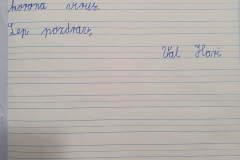 korona virus.
Lep pozdrav,
Val Hari